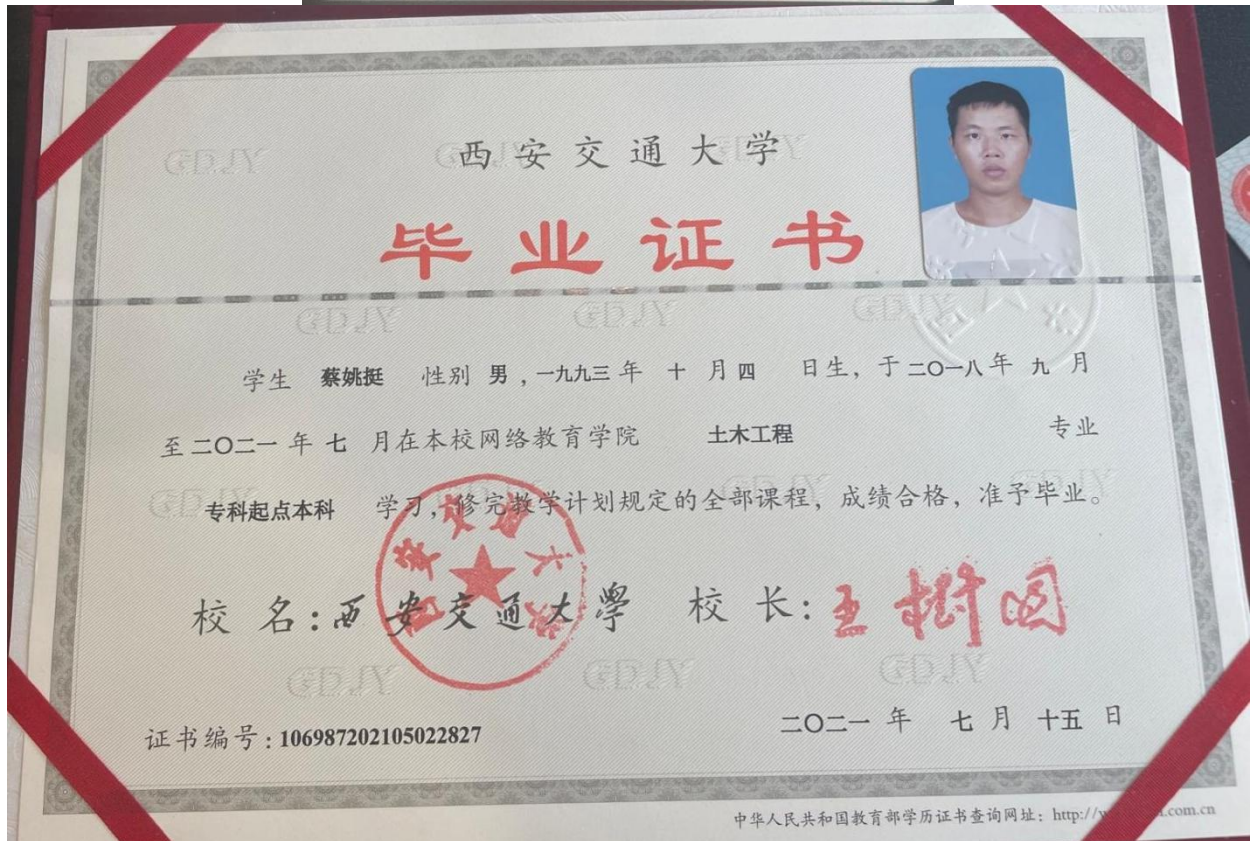 西安交通大学
毕业证书
学生 蔡姚挺 性别 男,一九九三年 十 月四 日生,于二〇一八年 九 月
至二〇二一年 七 月在本校网络教育学院 土木工程 专业
专科起点本科 学习,修完教学计划规定的全部课程,成绩合格,准予毕业。
校 名:西安交通大學 校 长:王树国
西安交通大学
证书编号:106987202105022827
二〇二一 年 七 月 十五 日
中华人民共和国教育部学历证书查询网址:http://
.com.cn
GDJY
GDJY
GDJY
GDJY
GDJY
GDJY
GDJY
GDJY